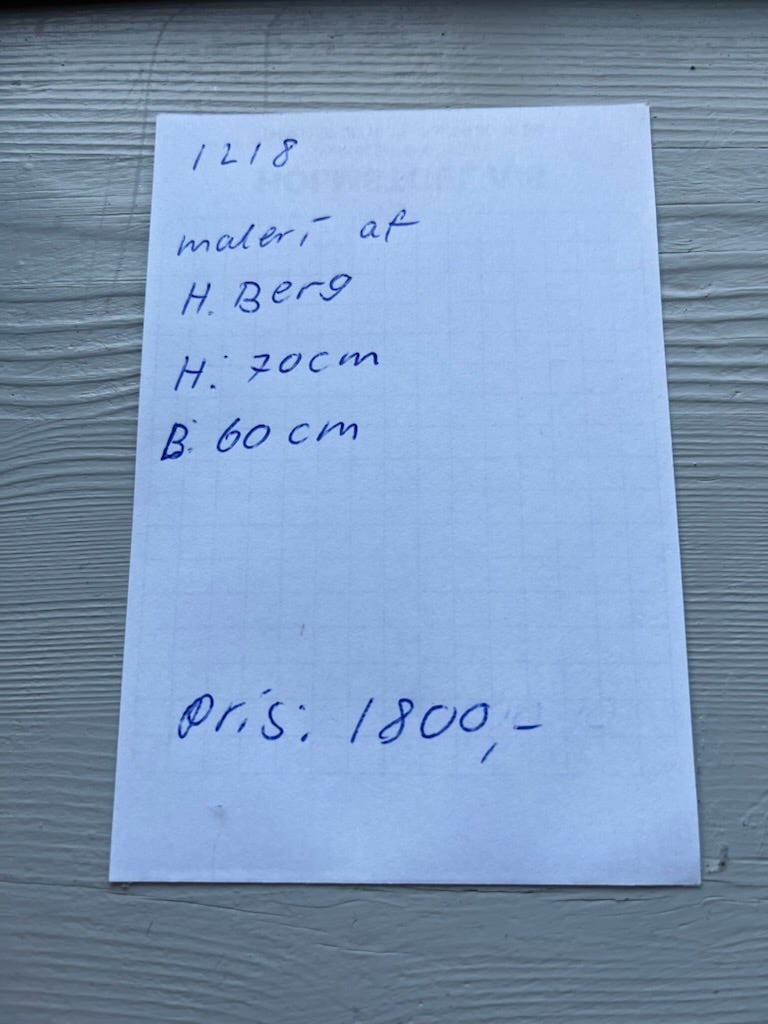 1218
maleri af
H. Berg
H: 70cm
B: 60 cm
Pris: 1800,-